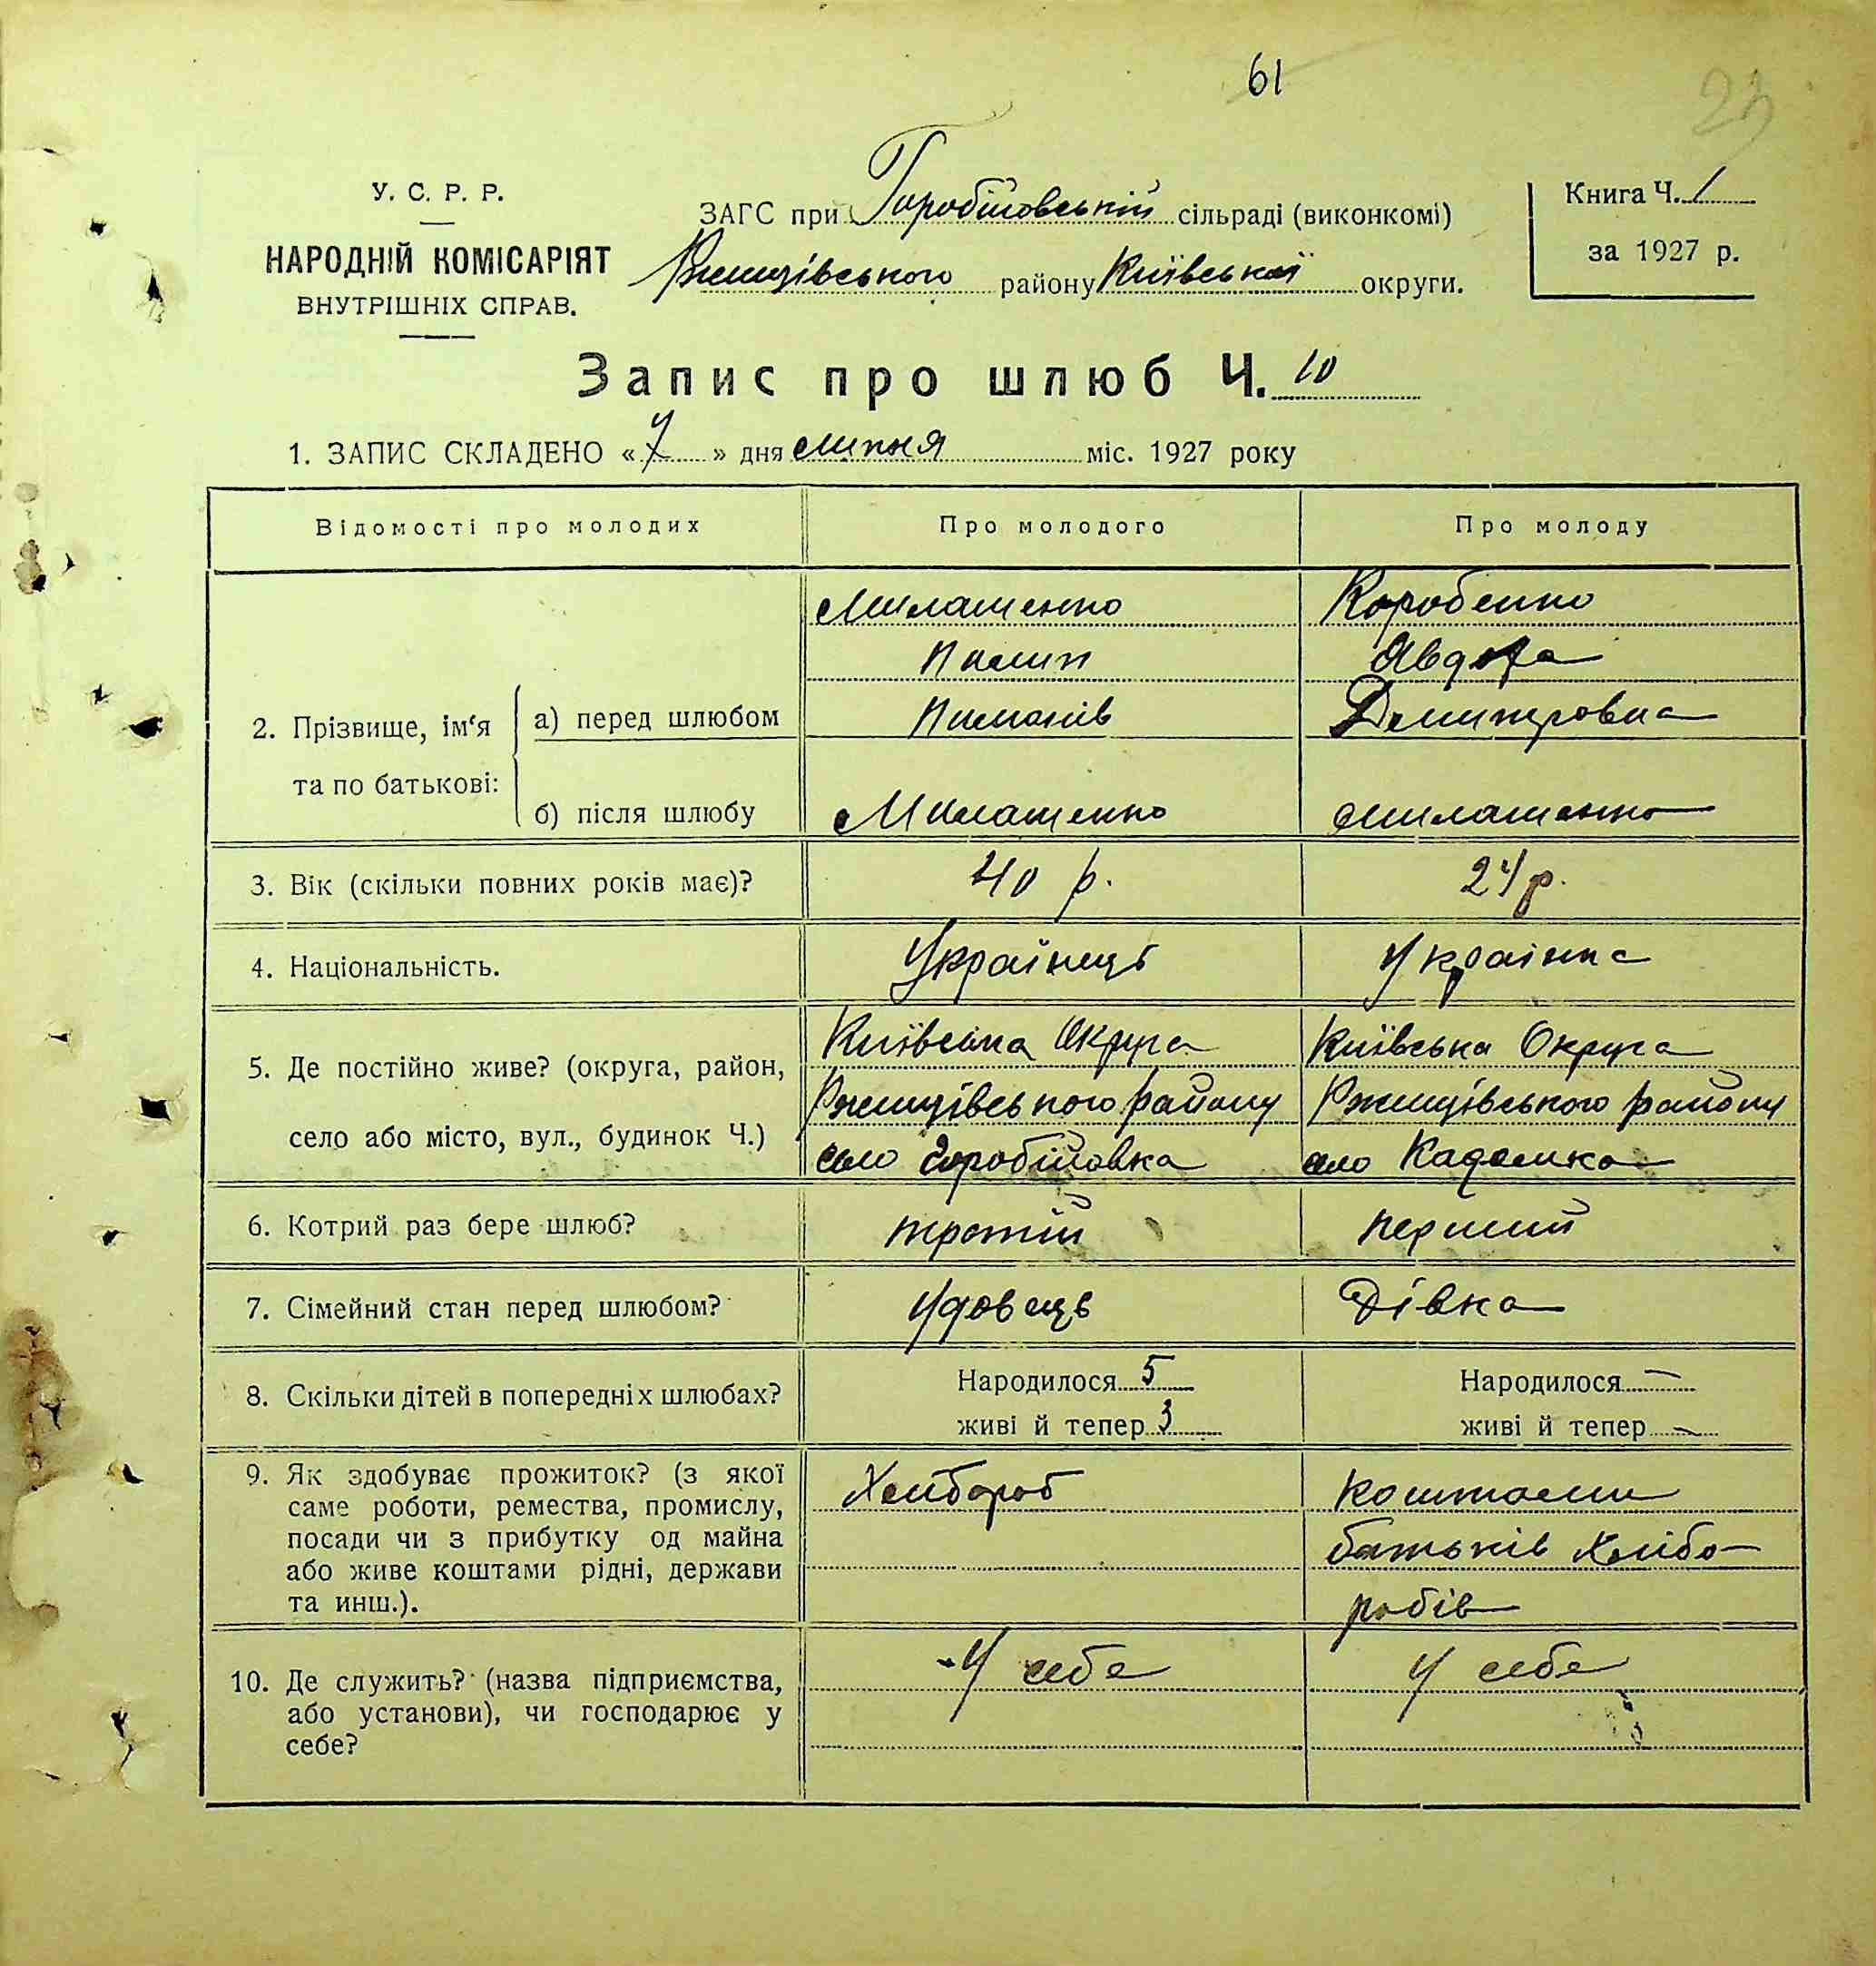 61
23
У. С. Р. Р.
НАРОДНІЙ КОМІСАРІЯТ
ВНУТРІШНІХ СПРАВ.
ЗАГС при Горобіївській сільраді (виконкомі)
Ржищівського району Київської округи.
Книга Ч. 1
за 1927 р.
Запис про шлюб Ч. 10
1. ЗАПИС СКЛАДЕНО «7» дня липня міс. 1927 року
Відомості про молодих
Про молодого
Про молоду
2. Прізвище, ім‘я
та по батькові:
а) перед шлюбом
б) після шлюбу
Милашенко
Пилип
Пилипів
Милашенко
Коробенко
Явдоха
Демитровна
Милашенко
3. Вік (скільки повних років має)?
40 р.
24 р.
4. Національність.
Українець
Українка
5. Де постійно живе? (округа, район,
село або місто, вул., будинок Ч.)
Київська Округа
Ржищівського району
село Горобіївка
Київська Округа
Ржищівського району
село Кадомка
6. Котрий раз бере шлюб?
третій
перший
7. Сімейний стан перед шлюбом?
Удовець
Дівка
8. Скільки дітей в попередніх шлюбах?
Народилося 5
живі й тепер 3
Народилося —
живі й тепер —
9. Як здобуває прожиток? (з якої
саме роботи, ремества, промислу,
посади чи з прибутку од майна
або живе коштами рідні, держави
та инш.).
Хлібороб
коштами
батьків хлібо-
робів
10. Де служить? (назва підприємства,
або установи), чи господарює у
себе?
У себе
У себе